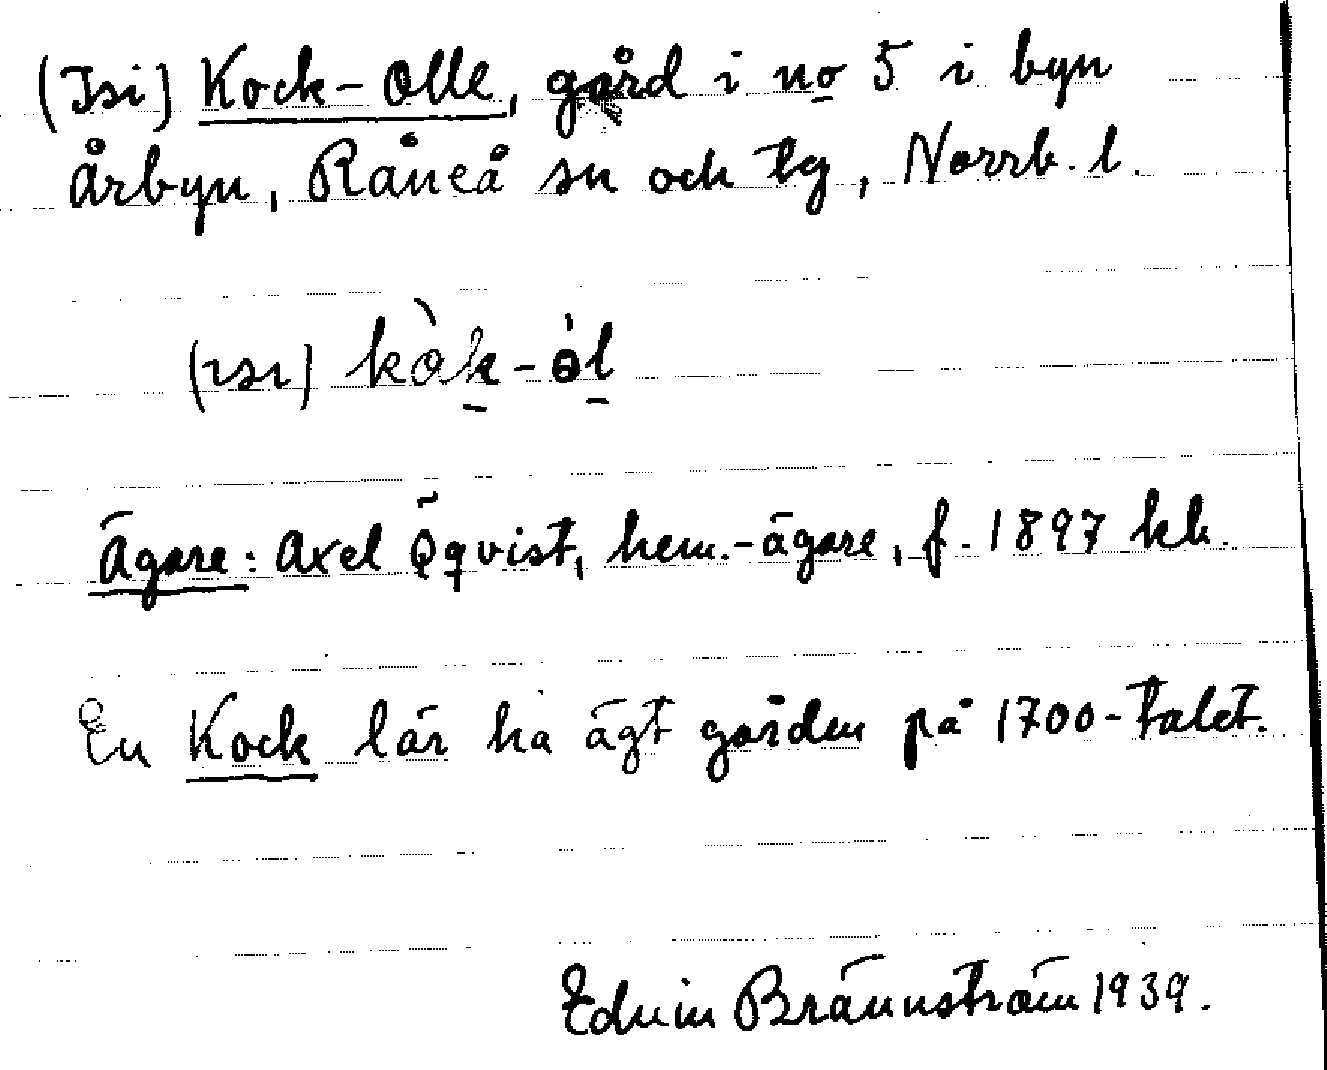 (Isi) Kock-Olle, gård i no 5 i byn
Årbyn, Råneå sn och tg, Norrb. l.
(ısı) kòk-òl
Ägare: Axel Öqvist, hem.-ägare, f. 1897 hb.
En Kock lär ha ägt gården på 1700-talet.
Edvin Brännström 1939.